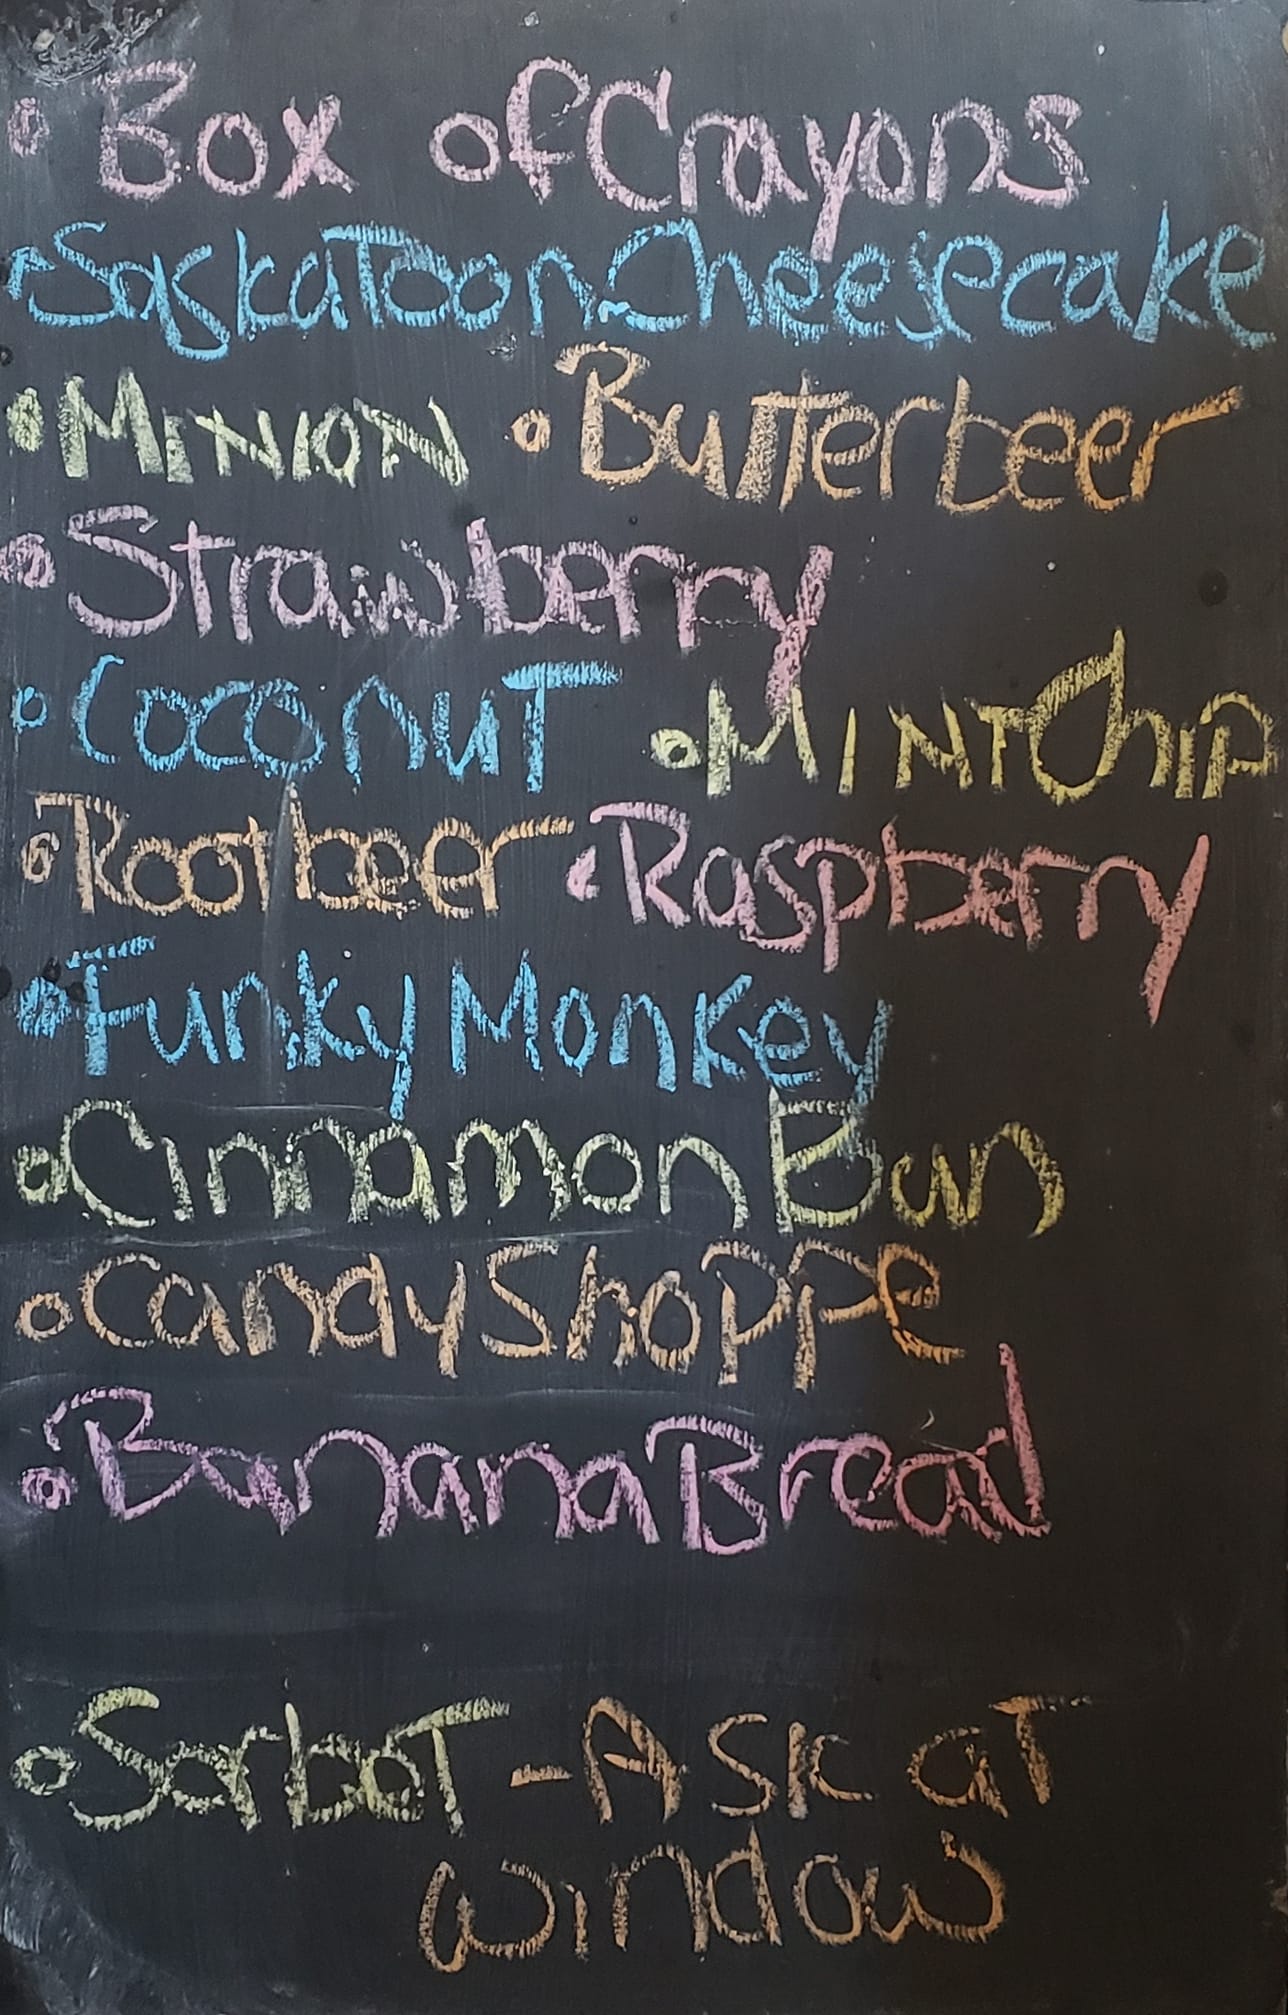 • Box of Crayons
• Saskatoon Cheesecake
• MINION • Butterbeer
• Strawberry
• Coconut • MINT Chip
• Rootbeer • Raspberry
• Funky Monkey
• Cinnamon Bun
• Candy Shoppe
• Banana Bread
• Sorbet - Ask at
window